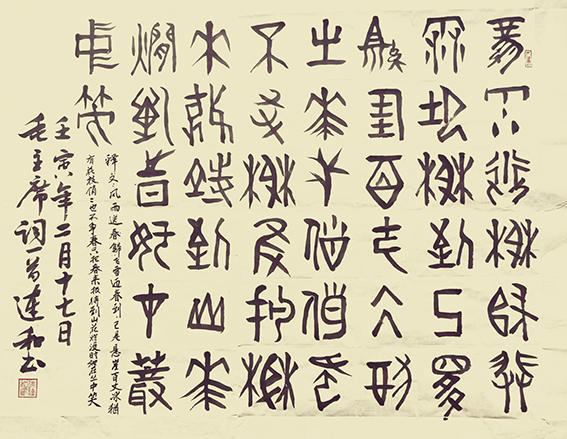 風雨送春歸飛
雪迎春到已是
懸崖百丈冰猶
有花枝俏俏也
不爭春只把春
來報待到山花
爛漫時她在叢
中笑
释文:风雨送春归飞雪迎春到已是悬崖百丈冰猶
有花枝俏二也不争春只把春来报待到山花烂漫时她在丛中笑
壬寅年二月十七日
毛主席词一首